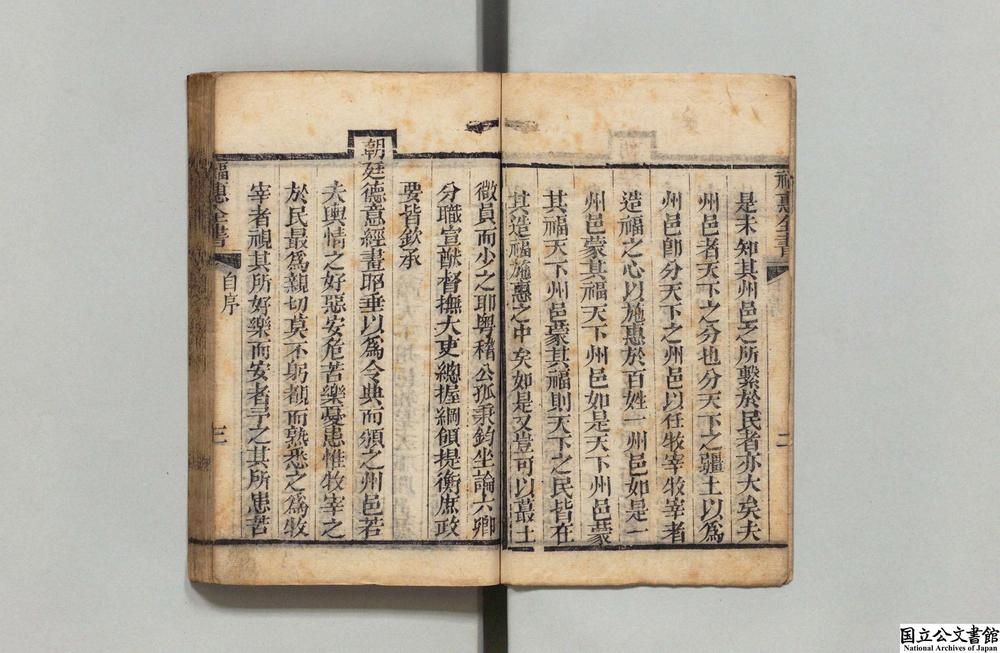 福惠全書
二
是未知其州邑之所繫於民者亦大矣夫
州邑者天下之分也分天下之疆土以為
州邑卽分天下之州邑以任牧宰牧宰者
造福之心以施惠於百姓一州邑如是一
州邑蒙其福天下州邑如是天下州邑蒙
其福天下州邑蒙其福則天下之民皆在
其造福施惠之中矣如是又豈可以蕞土
微員而少之耶粤稽公孤秉鈞坐論六卿
分職宣猷督撫大吏總握綱領提衡庶政
要皆欽承
朝廷德意經畫昭垂以為令典而頒之州邑若
夫輿情之好惡安危苦樂憂患惟牧宰之
於民最為親切莫不躬覩而熟悉之為牧
宰者視其所好樂而安者予之其所患苦
福惠全書
自序
三
国立公文書館
National Archives of Japan